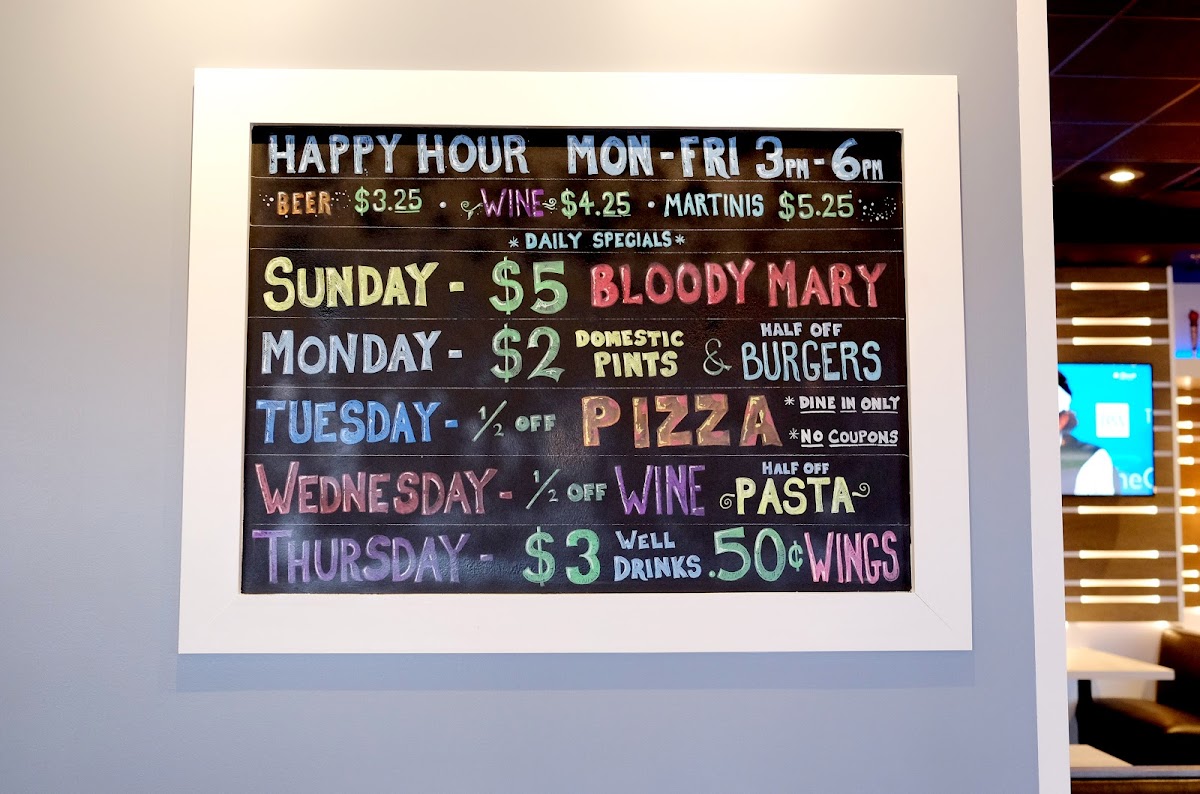 HAPPY HOUR MON - FRI 3PM - 6PM
BEER $3.25 · WINE $4.25 · MARTINIS $5.25
*DAILY SPECIALS*
SUNDAY - $5 BLOODY MARY
MONDAY - $2 DOMESTIC PINTS & HALF OFF BURGERS
TUESDAY - 1/2 OFF PIZZA * DINE IN ONLY
*NO COUPONS
WEDNESDAY - 1/2 OFF WINE HALF OFF PASTA
THURSDAY - $3 WELL DRINKS .50¢ WINGS